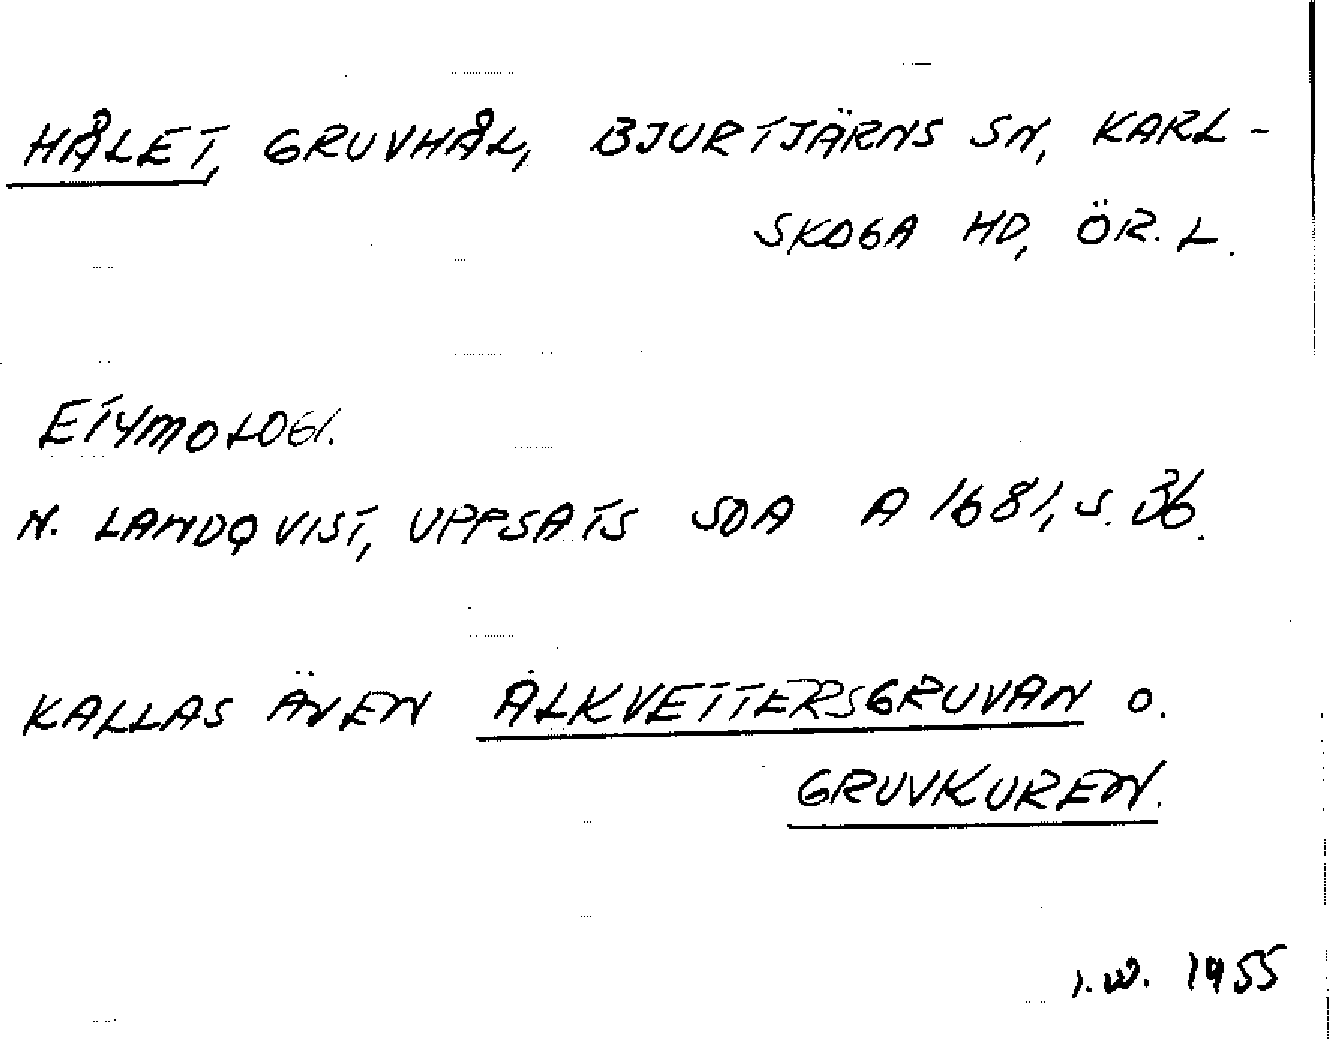 HÅLET, GRUVHÅL, BJURTJÄRNS SN, KARL-
SKOGA HD, ÖR. L.
ETYMOLOGI.
N. LANDQVIST, UPPSATS SOA A 1681, S. 36.
KALLAS ÄVEN ÄLKVETTERSGRUVAN O.
GRUVKUREN.
I.W. 1955